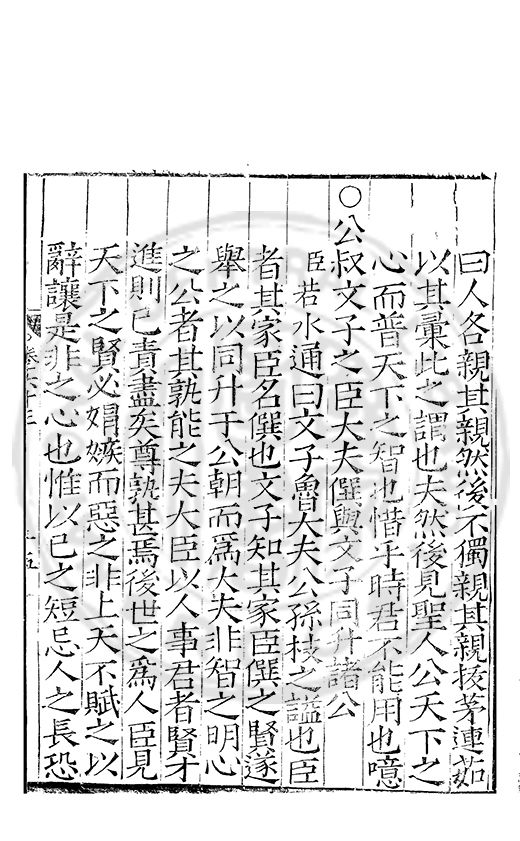 曰人各親其親然後不獨親其親拔茅連茹
以其彙此之謂也夫然後見聖人公天下之
心而普天下之智也惜乎時君不能用也噫
○公叔文子之臣大夫僎與文子同升諸公
臣若水通曰文子魯大夫公孫枝之謚也臣
者其家臣名僎也文子知其家臣僎之賢遂
舉之以同升于公朝而爲大夫非智之明心
之公者其孰能之夫大臣以人事君者賢才
進則已責盡矣尊孰甚焉後世之爲人臣見
天下之賢必媢嫉而惡之非上天不賦之以
辭讓是非之心也惟以己之短忌人之長恐
卷六十三